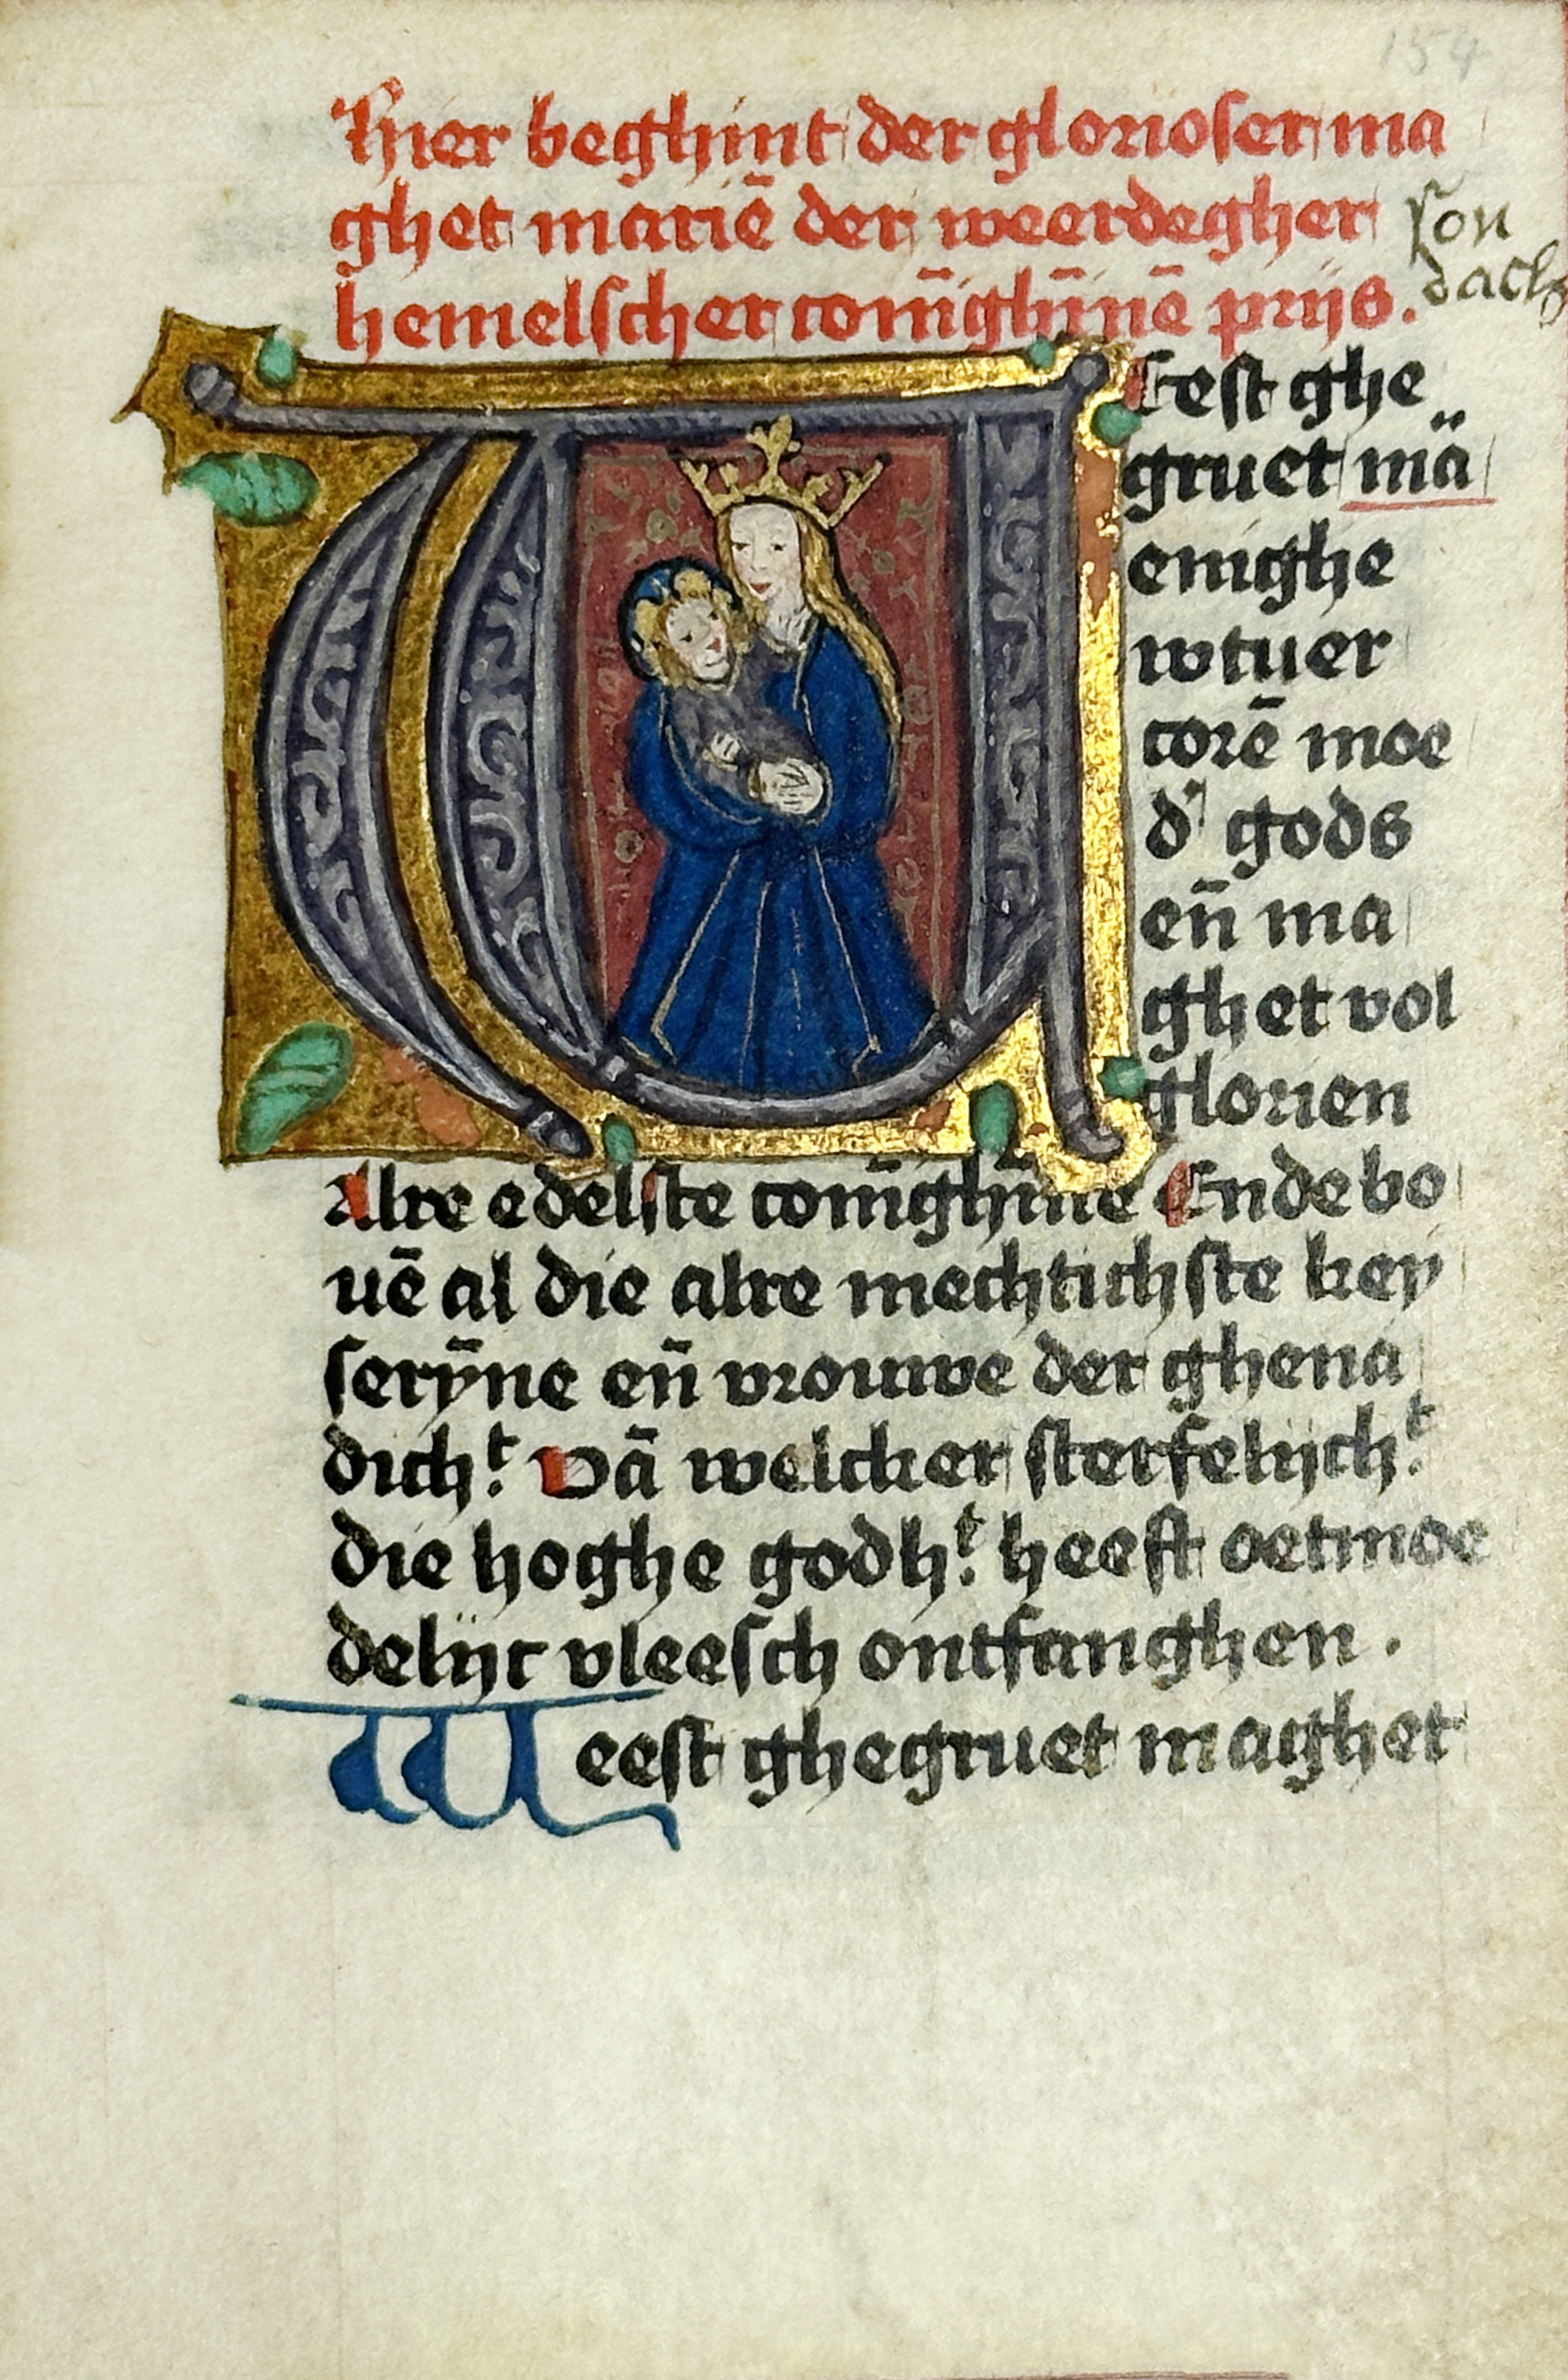 154
Hier beghint der glorioser ma
ghet mariē der weerdegher
hemelscher coni̅ghi̅nē prijs.
son
dach
Eest ghe
gruet mä
enighe
wtuer
corē moe
d' gods
en̄ ma
ghet vol
glorien
Alre edelste coni̅ghi̅ne Ende bo
uē al die alre mechtichste key
serȳne en̄ vrouwe der ghena
dich.t Vā welcker sterfelijch.t
die hoghe godh.t heeft oetmoe
delijc vleesch ontfanghen.
Weest ghegruet maghet